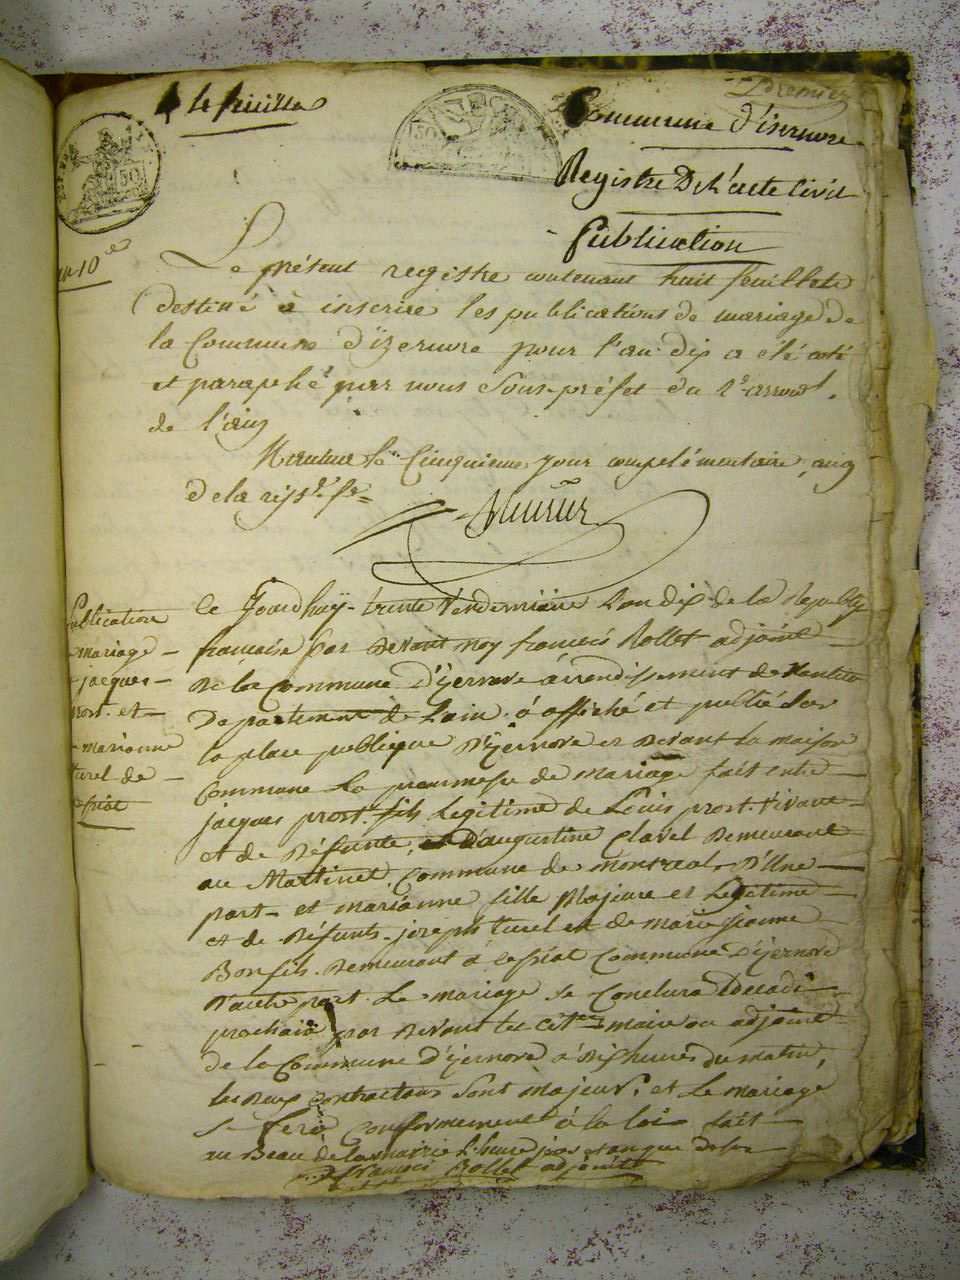 Premier
le feuille
50
150
Commune d'isernore
Registre De l'acte Civil
Publication
an 10e
Le présent registre contenant huit feuillets
destiné à inscrire les publications de mariage de
la Commune d'izernore pour l'an dix a été coté
et paraphé par nous Sous-préfet du 2e arrond.t
de l'ain
Nantua le Cinquieme jour complémentaire, an 9
de la rép.e fr.se
Publication
mariage
jacques
prost. et
marianne
turel de
ce Jourdhuÿ trente Vendemiaire l'an dix de la Republiq
francaise par devant moy francois Rollet adjoint
de la Commune D'yzernore arrondissement de Nantua
Departement de Lain. à affiché et publié sur
la place publique D'yzernore et devant la maison
Commune La proumesse de mariage fait entre
jacques prost. fils Legitime de Louis prost. vivant
et de Défunte, D'augustine Clavel Demeurant
au Martinet Commune de montreal D'Une
part et marianne fille Majeure et Legitime
et de Défunts joseph turel et de marie jeanne
Bonfils. Demeurant à Commune D'yzernore
D'autre part. Le mariage se Conclura Decadi
prochain par devant les cit.en maire ou adjoint
de la Commune D'yzernore à Dix heures du matin,
les Deux contractans Sont majeur, et Le mariage
se fera Conformement à la loi fait
au Beau de la mairie L'heure jour
francois Rollet adjoint